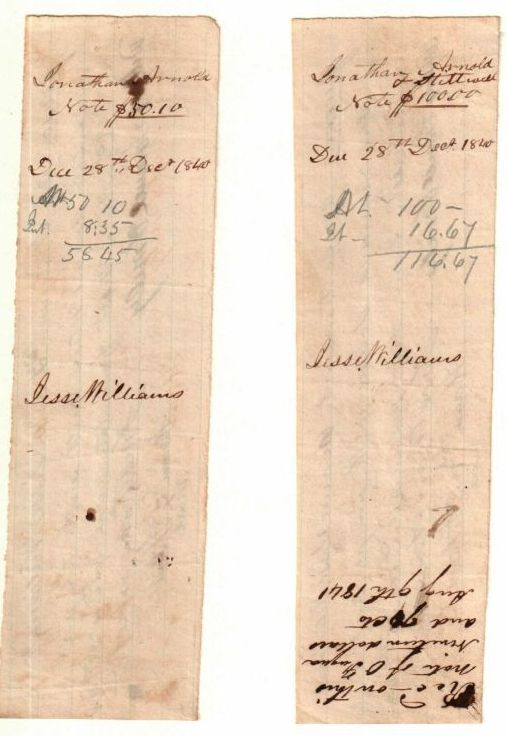 Jonathan Arnold
Note $50.10
Due 28th, Dect 1840
Mt 50 10
Int. 8.35
58.45
Jesse Williams
Jonathan Arnold
& Stillwell
Note $100.00
Due 28th Dect 1840
At - 100 -
It - 16.67
116.67
Jesse Williams
Recd on this
note of O
Nineteen dollars
and cts
Aug 9th 1841